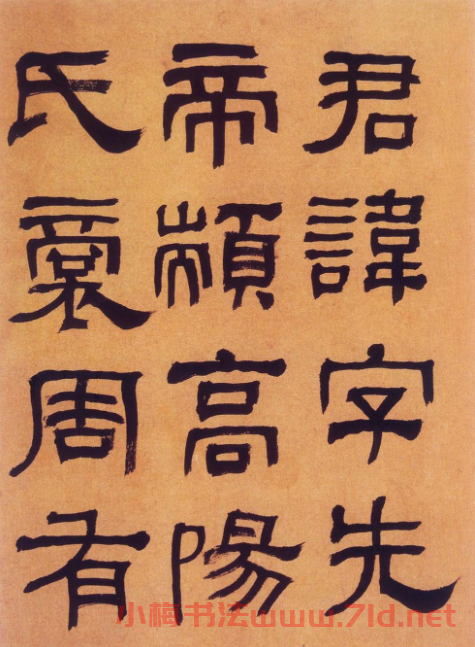 君諱字先
帝顓高陽
氏裔周有
小梅书法www.7ld.net